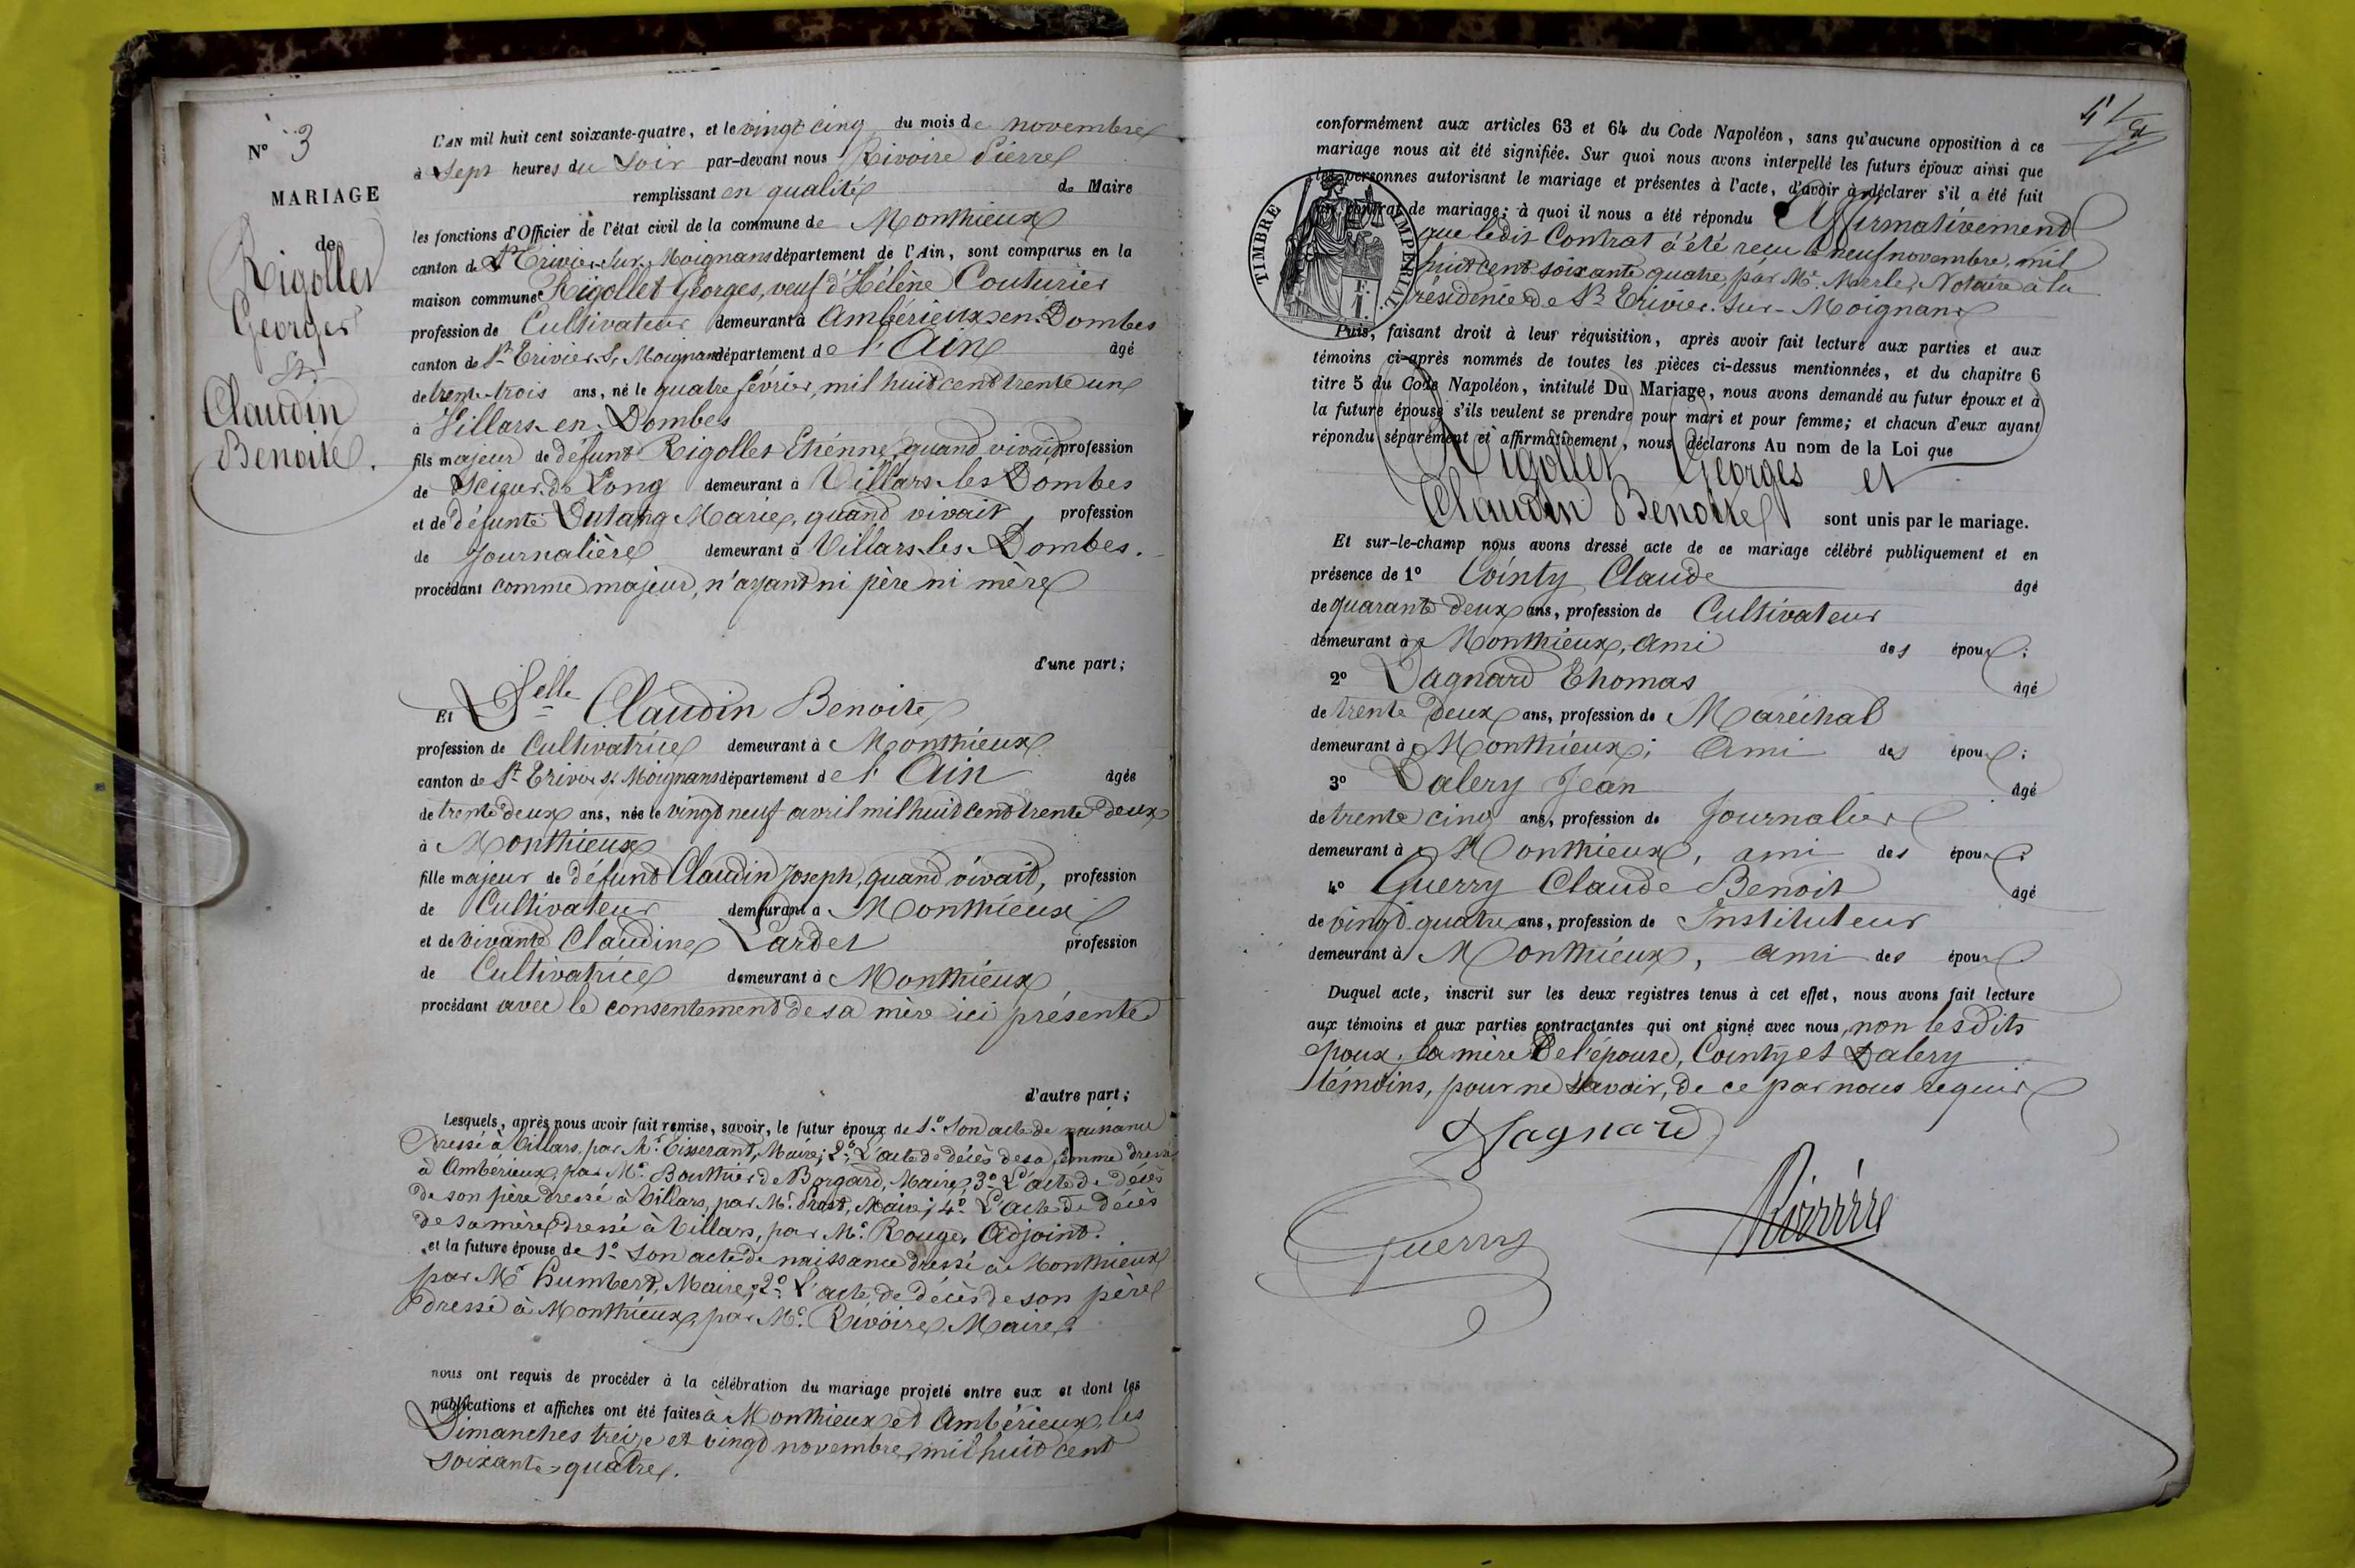 N° 3
MARIAGE
de
Rigollet
Georges
et
Claudin
Benoite.
L'AN mil huit cent soixante-quatre, et le vingt cinq du mois de novembre
à Sept heures du Soir par-devant nous Rivoire Pierre
remplissant en qualité de Maire
les fonctions d'Officier de l'état civil de la commune de Monthieux
canton de St Trivier-sur-Moignans département de l'Ain, sont comparus en la
maison commune Rigollet Georges, veuf d'Hélène Couturier
profession de Cultivateur demeurant à Ambérieux en Dombes
canton de St Trivier S. Moignans département de l'Ain âgé
de trente-trois ans, né le quatre février, mil huit cent trente un
à Villars-en-Dombes
fils majeur de défunt Rigollet Etienne, quand vivait profession
de Scieur de Long demeurant à Villars-les Dombes
et de défunte Dutang Marie, quand vivait, profession
de Journalière demeurant à Villars-les-Dombes.
procédant comme majeur, n'ayant ni père ni mère
d'une part;
Et Delle Claudin Benoite
profession de Cultivatrice demeurant à Monthieux
canton de St Trivier s. Moignans département de l'Ain âgée
de trente deux ans, née le vingt neuf avril mil huit cent trente deux
à Monthieux
fille majeur de défunt Claudin Joseph, quand vivait, profession
de Cultivateur demeurant à Monthieux
et de vivante Claudine Lardet profession
de Cultivatrice demeurant à Monthieux
procédant avec le consentement de sa mère ici présente
d'autre part;
Lesquels, après nous avoir fait remise, savoir, le futur époux de 1° Son acte de naissance
dressé à Villars, par Mr Tisserant, Maire; 2° L'acte de décès de sa femme dressé
à Ambérieux, par Mr Bouthier de Borgard, Maire, 3° L'acte de décès
de son père dressé à Villars, par Mr Prost, Maire; 4° L'acte de décès
de sa mère dressé à Villars, par Mr Rouge, Adjoint.
et la future épouse de 1° Son acte de naissance dressé à Monthieux
par Mr Humbert, Maire; 2° L'acte de décès de son père
dressé à Monthieux, par Mr Rivoire Maire.
nous ont requis de procéder à la célébration du mariage projeté entre eux et dont les
publications et affiches ont été faites à Monthieux et Ambérieux, les
Dimanches treize et vingt novembre, mil huit cent
soixante-quatre.
conformément aux articles 63 et 64 du Code Napoléon, sans qu'aucune opposition à ce
mariage nous ait été signifiée. Sur quoi nous avons interpellé les futurs époux ainsi que
les personnes autorisant le mariage et présentes à l'acte, d'avoir à déclarer s'il a été fait
un contrat de mariage; à quoi il nous a été répondu Affirmativement
que ledit Contrat a été reçu le neuf novembre, mil
huit cent soixante quatre, par Mr Merle, Notaire à la
résidence de St Trivier-sur-Moignans
TIMBRE IMPERIAL
1 F.
Puis, faisant droit à leur réquisition, après avoir fait lecture aux parties et aux
témoins ci-après nommés de toutes les pièces ci-dessus mentionnées, et du chapitre 6
titre 5 du Code Napoléon, intitulé Du Mariage, nous avons demandé au futur époux et à
la future épouse s'ils veulent se prendre pour mari et pour femme; et chacun d'eux ayant
répondu séparément et affirmativement, nous déclarons Au nom de la Loi que
Rigollet Georges et
Claudin Benoite sont unis par le mariage.
Et sur-le-champ nous avons dressé acte de ce mariage célébré publiquement et en
présence de 1° Cointy Claude âgé
de quarante deux ans, profession de Cultivateur
demeurant à Monthieux, ami des époux;
2° Dagnard Thomas âgé
de trente deux ans, profession de Maréchal
demeurant à Monthieux; Ami des époux;
3° Dalery Jean âgé
de trente cinq ans, profession de Journalier
demeurant à Monthieux, ami des époux;
4° Guerry Claude Benoit âgé
de vingt quatre ans, profession de Instituteur
demeurant à Monthieux, ami des époux
Duquel acte, inscrit sur les deux registres tenus à cet effet, nous avons fait lecture
aux témoins et aux parties contractantes qui ont signé avec nous, non lesdits
époux, la mère de l'épouse, Cointy et Dalery
témoins, pour ne savoir, de ce par nous requis
Dagnard
Guerry
Rivoire